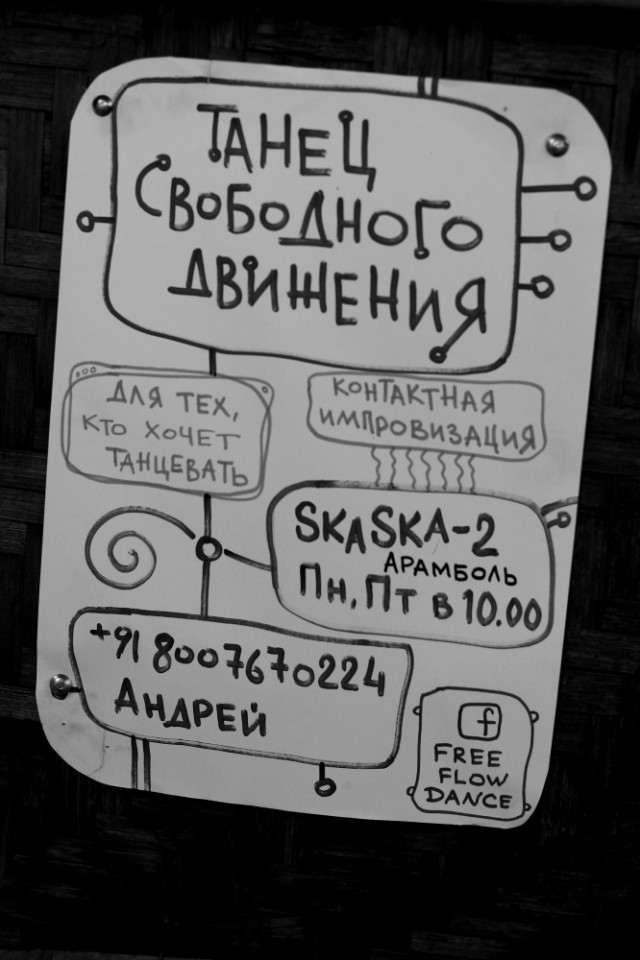 ТАНЕЦ
СВОБОДНОГО
ДВИЖЕНИЯ
ДЛЯ ТЕХ,
КТО ХОЧЕТ
ТАНЦЕВАТЬ
КОНТАКТНАЯ
ИМПРОВИЗАЦИЯ
SKASKA-2
АРАМБОЛЬ
Пн, Пт в 10.00
+91 8007670224
АНДРЕЙ
f
FREE
FLOW
DANCE